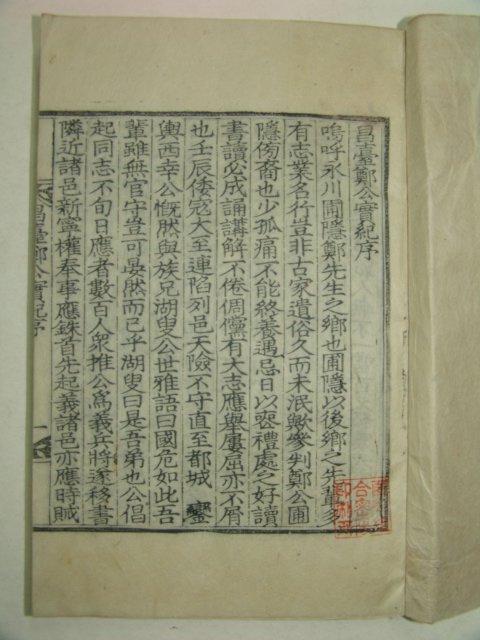 昌臺鄭公實紀序
嗚呼永川圃隱鄭先生之鄉也圃隱以後鄉之先輩多
有志業名行豈非古家遺俗久而未泯歟參判鄭公圃
隱傍裔也少孤痛不能終養遇忌日以喪禮處之好讀
書讀必成誦講解不倦倜儻有大志應舉屢屈亦不屑
也壬辰倭寇大至連陷列邑天險不守直至都城 鑾
輿西幸公慨然與族兄湖叟公世雅語曰國危如此吾
輩雖無官守豈可晏然而已乎湖叟曰是吾弟也公倡
起同志不旬日應者數百人衆推公爲義兵將遂移書
隣近諸邑新寧權奉事應銖首先起義諸邑亦應時賊
昌臺鄭公實紀序
一